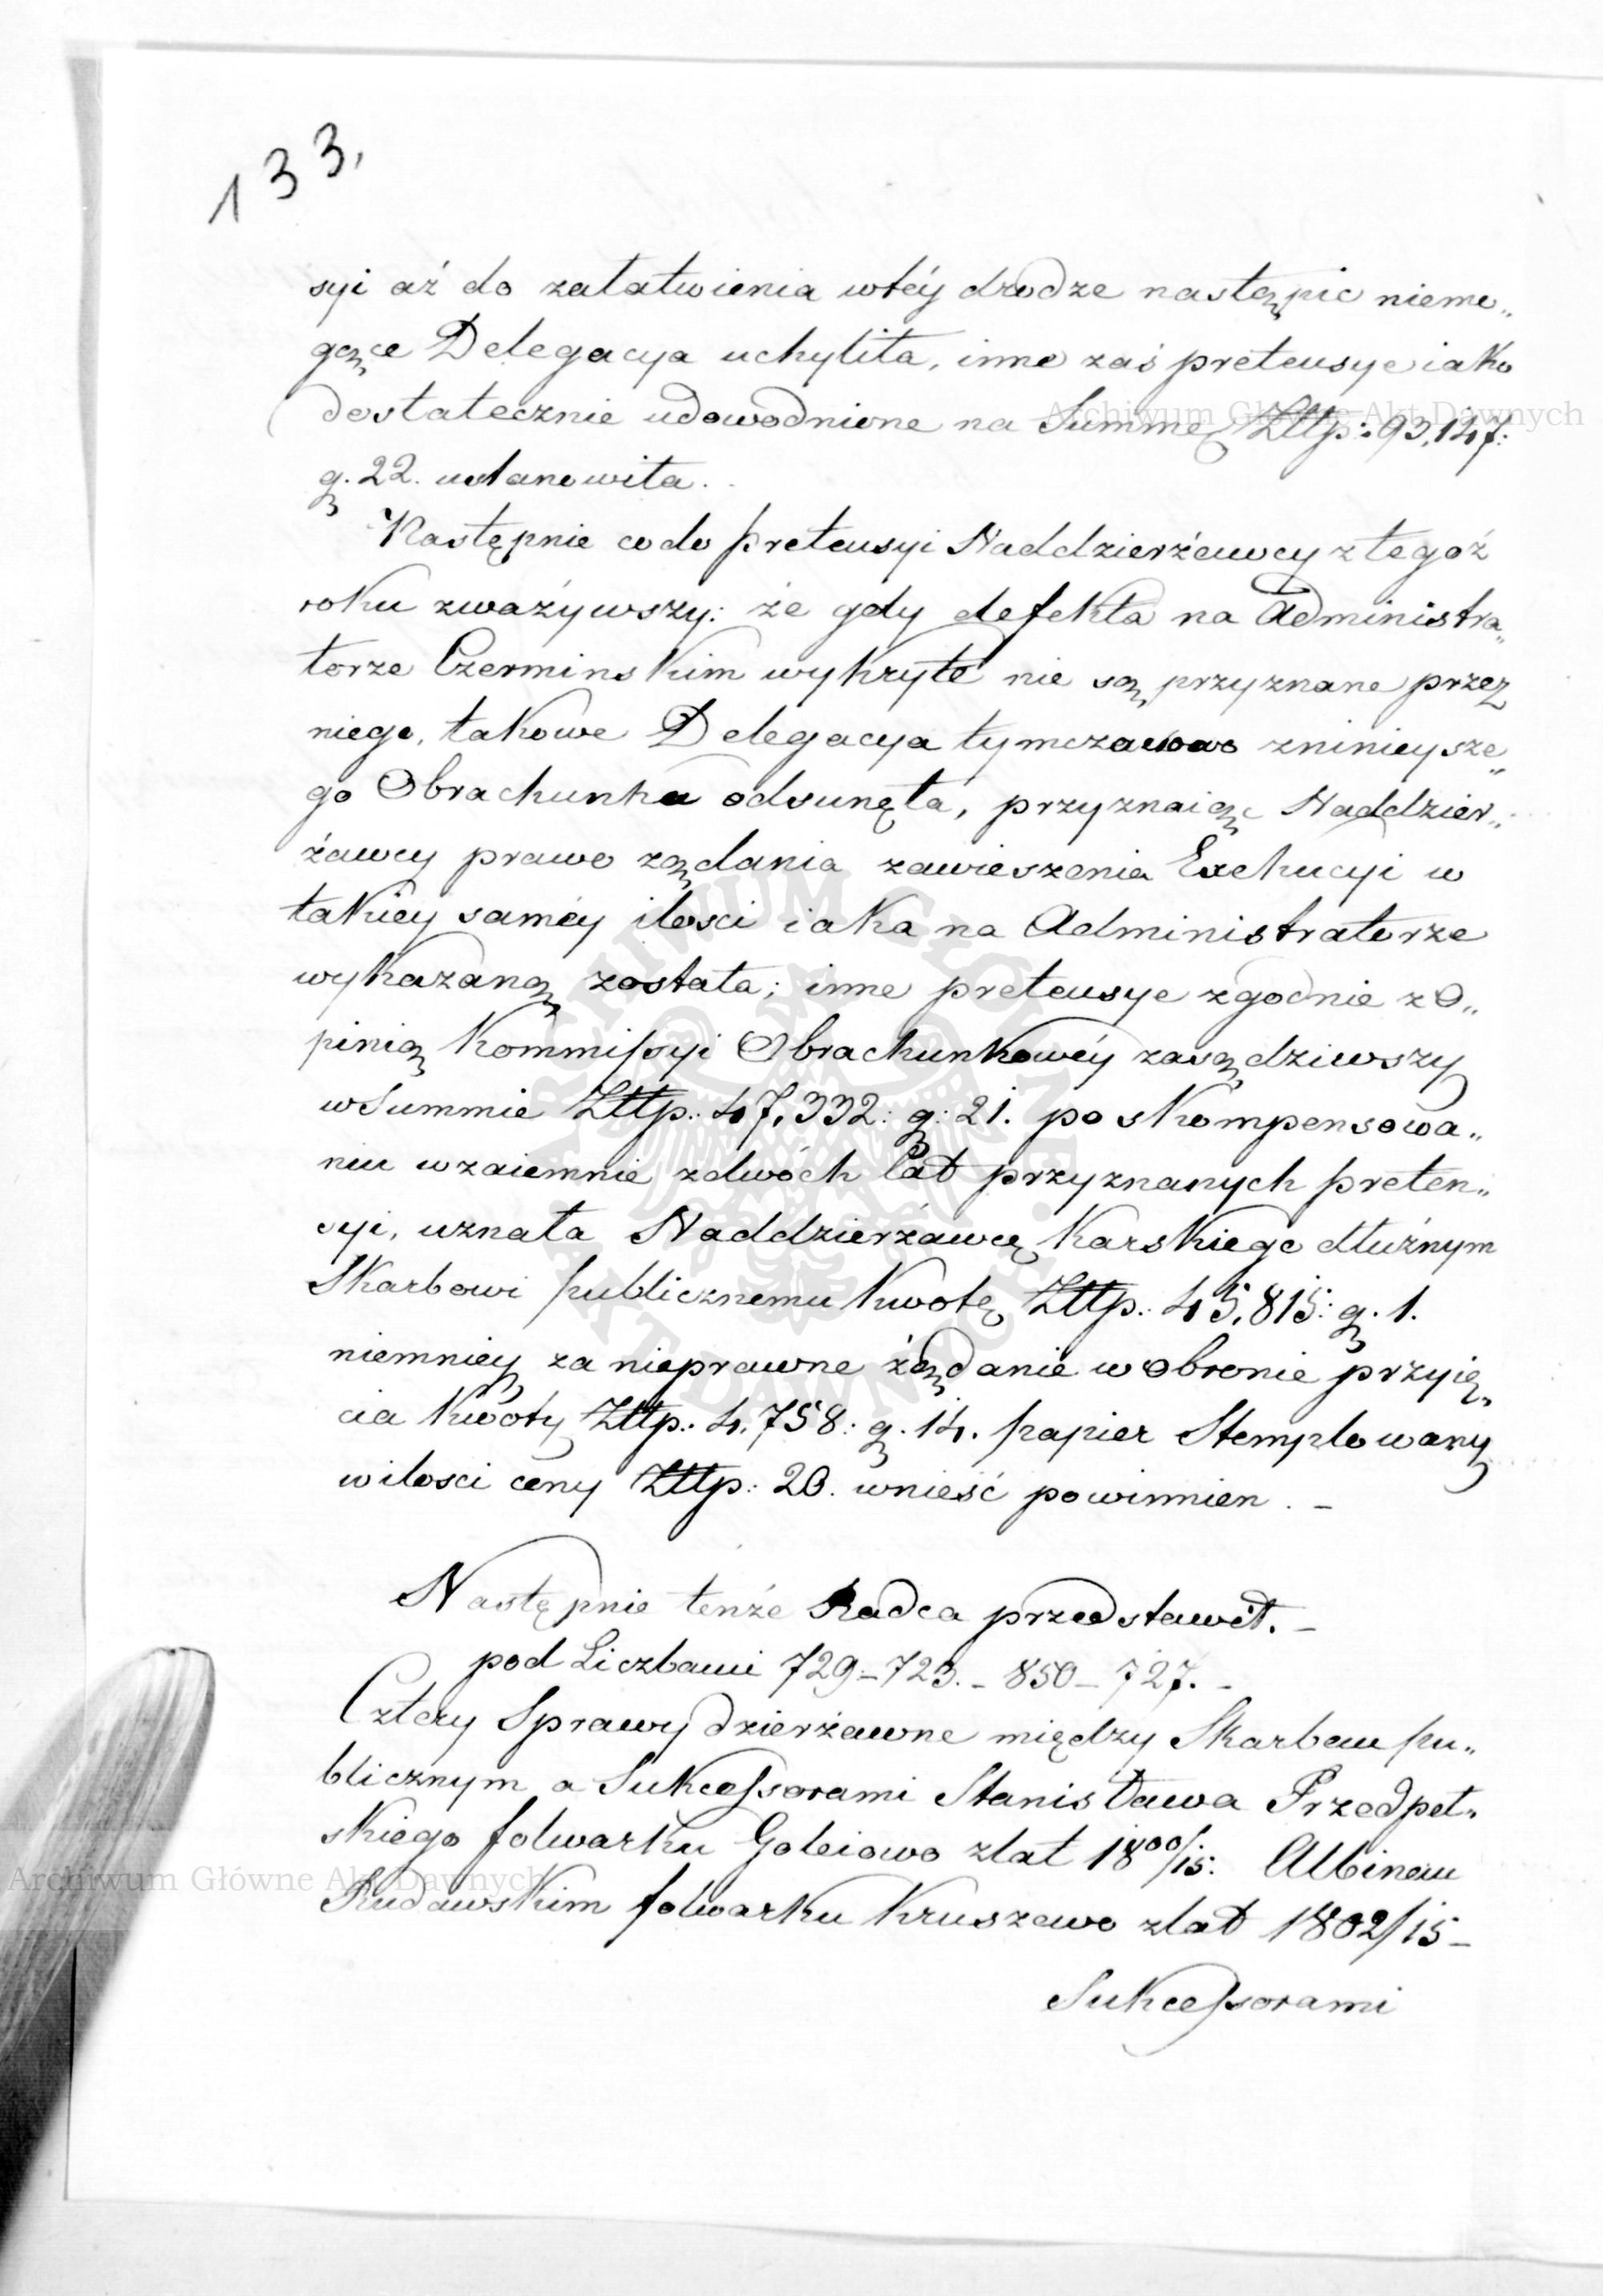 133.
syi aż do załatwienia wtéy drodze nastąpić niemo„
gące Delegacya uchyliła, inne zaś pretensye iako
dostatecznie udowodnione na Summę Złłp: 93,147:
g. 22. ustanowiła.
Następnie co do pretensyi Naddzierżawcy z tegoż
roku zważywszy: że gdy defekta na Administra„
torze Czerminskim wykryte nie są przyznane przez
niego, takowe Delegacya tymczasowo zninieysze„
go Obrachunku odsunęła, przyznaiąc Naddzier„
żawcy prawo ządania zawieszenia Exekucyi w
takiéy saméy ilosci iaka na Administratorze
wykazaną została; inne pretensye zgodnie z O„
pinią Kommissyi Obrachunkowéy zasądziwszy
w Summie Złłp: 47,332: g: 21. po skompensowa„
niu wzaiemnie z dwóch Lat przyznanych preten„
syi, uznała Naddzierżawcę Karskiego dłużnym
Skarbowi publicznemu kwotę Złłp: 45,815: g. 1.
niemniéy za nieprawne żądanie w obronie przyię„
cia kwoty Złłp: 4,758: g. 14. papier Stemplowany
w ilosci ceny Złłp: 20. wnieść powinnien. –
Następnie tenże Radca przedstawił. –
pod Liczbami 729 – 723. – 850 – 727. –
Cztery Sprawy dzierżawne między Skarbem pu„
blicznym a Sukcessorami Stanisława Przedpeł„
skiego folwarku Goleiowo z lat 1800/15: Albinem
Rudawskim folwarku Kruszewo z lat 1802/15 –
Sukcessorami
Archiwum Główne Akt Dawnych
Archiwum Główne Akt Dawnych
ARCHIWUM GŁÓWNE AKT DAWNYCH